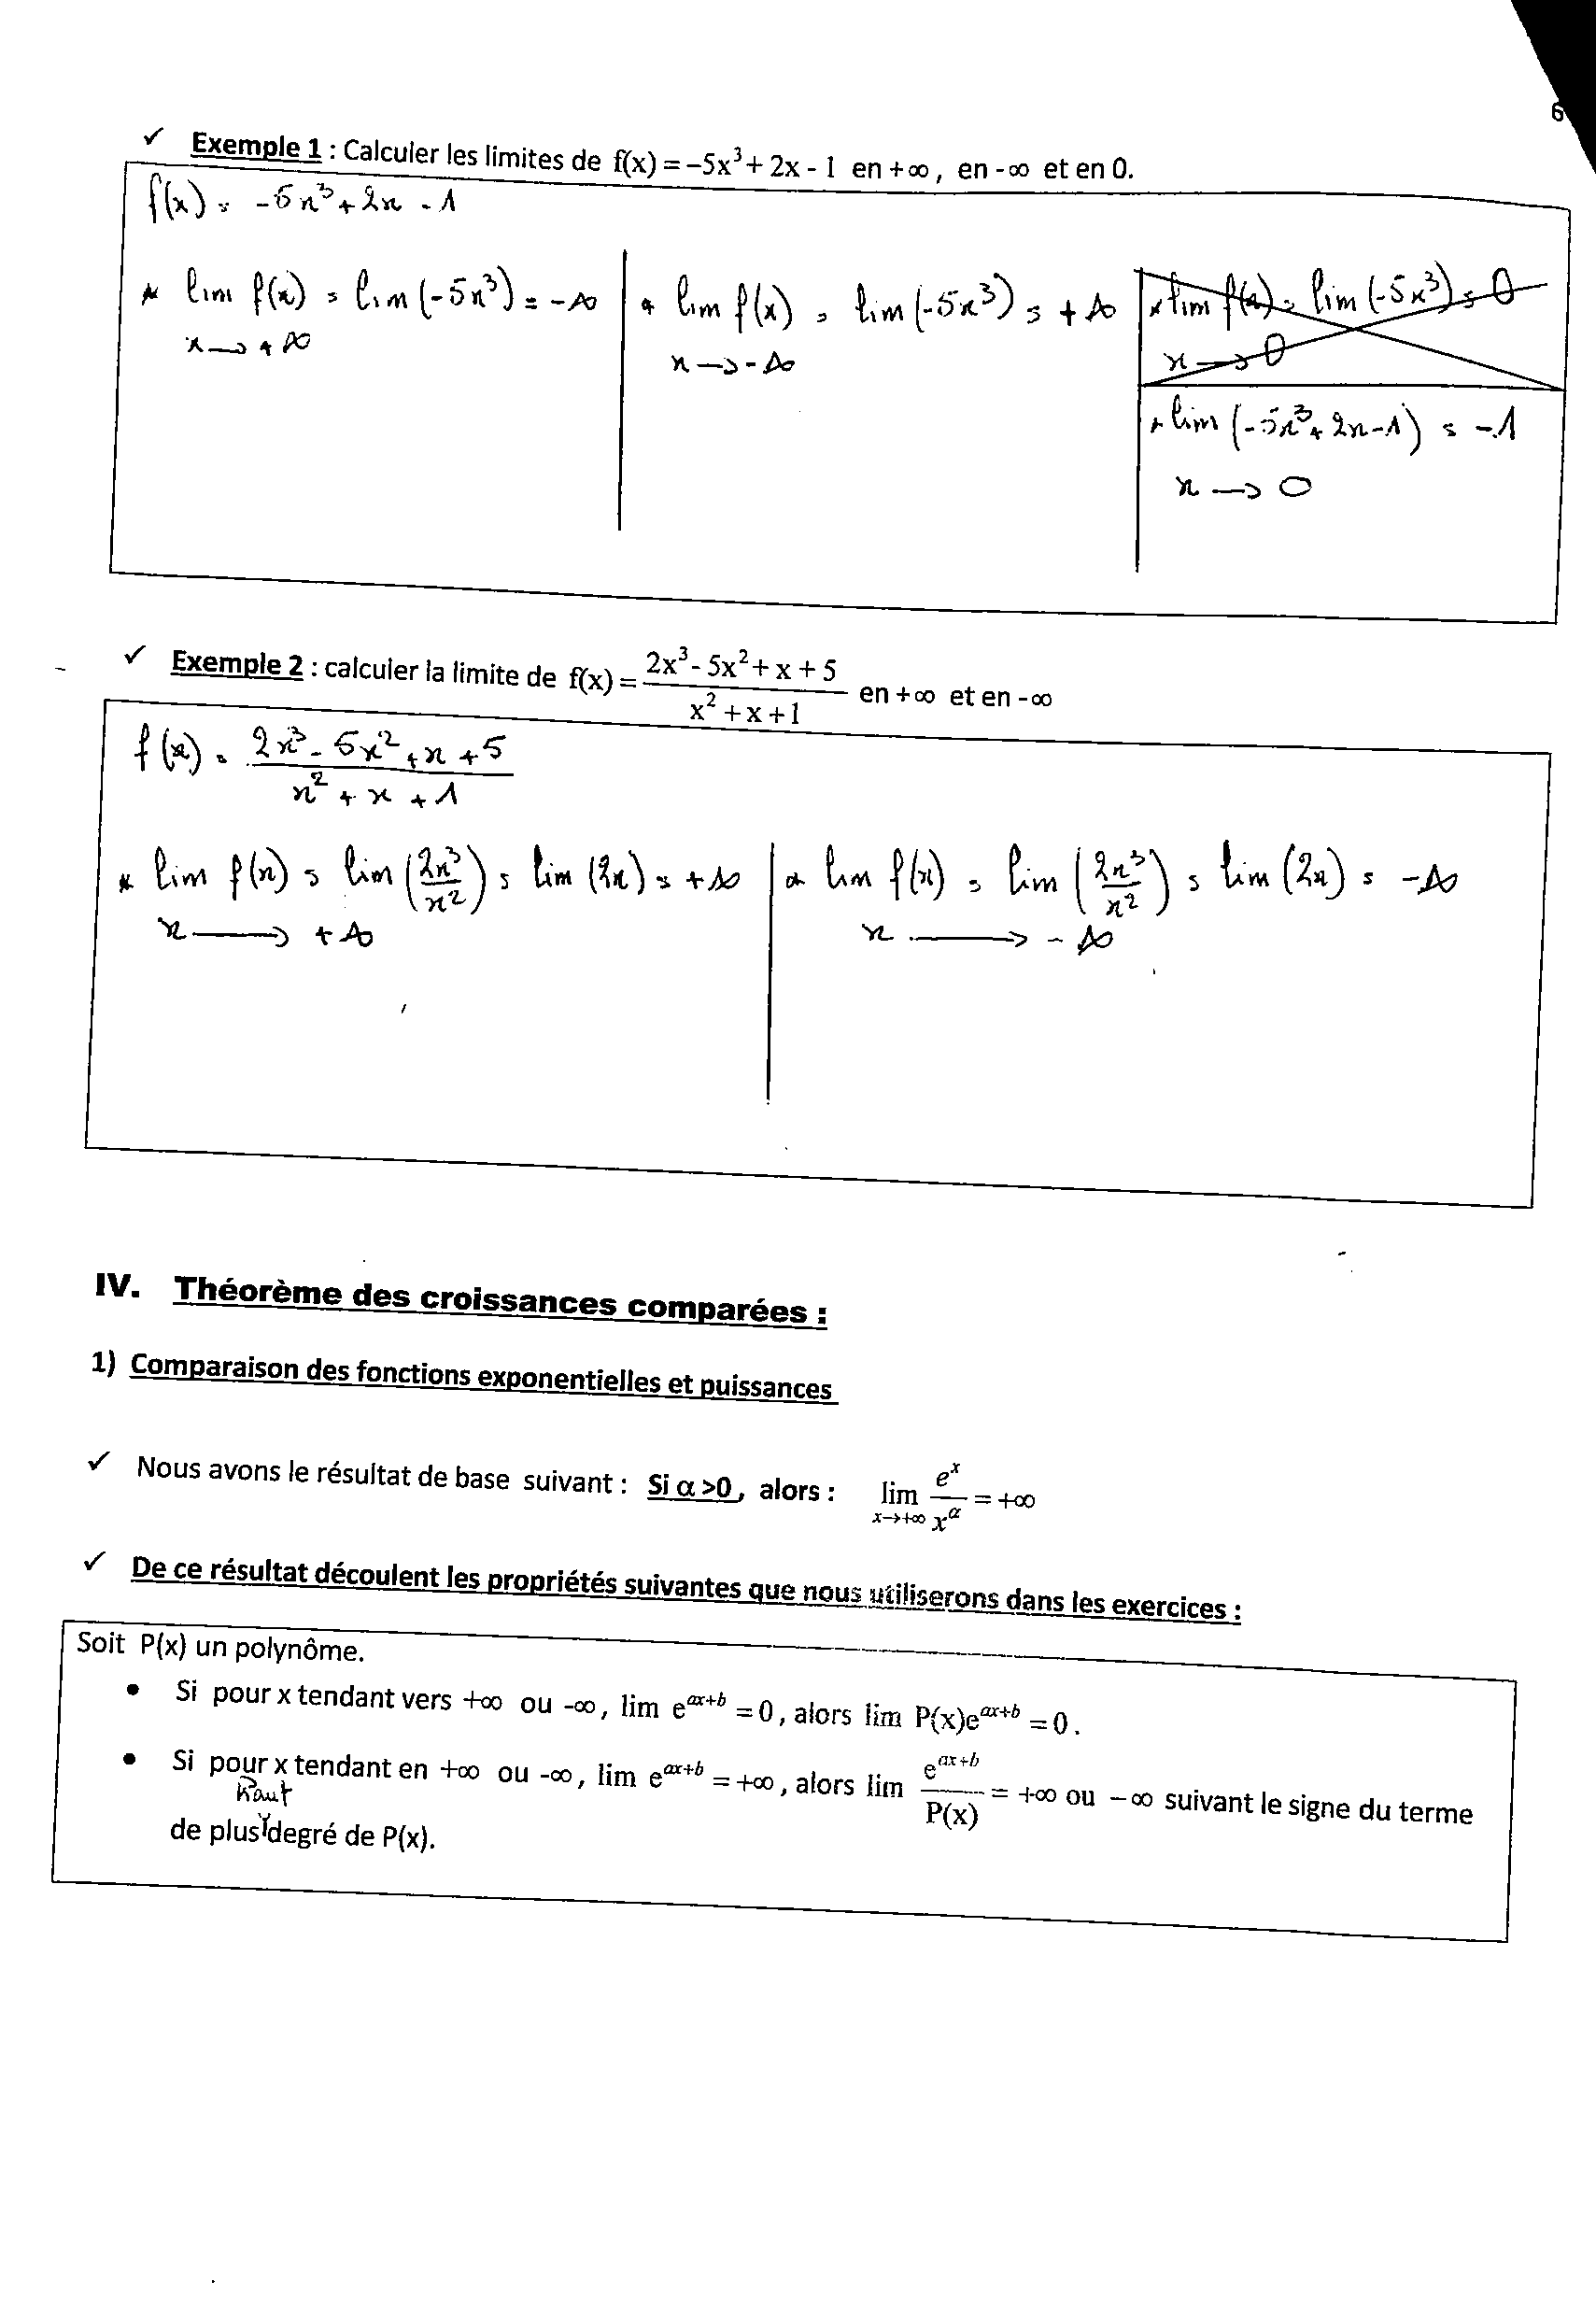 6
✓ Exemple 1 : Calculer les limites de f(x) = −5x³ + 2x - 1 en +∞, en -∞ et en 0.
f(x) = -5x³ + 2x - 1
* lim f(x) = lim (-5x³) = -∞ | * lim f(x) = lim (-5x³) = +∞ | * lim f(x) = lim (-5x³) = 0
x → +∞ | x → -∞ | x → 0
* lim (-5x³ + 2x - 1) = -1
x → 0
✓ Exemple 2 : calculer la limite de f(x) = (2x³ - 5x² + x + 5)/(x² + x + 1) en +∞ et en -∞
f(x) = (2x³ - 5x² + x + 5)/(x² + x + 1)
* lim f(x) = lim (2x³/x²) = lim (2x) = +∞ | * lim f(x) = lim (2x³/x²) = lim (2x) = -∞
x → +∞ | x → -∞
IV. Théorème des croissances comparées :
1) Comparaison des fonctions exponentielles et puissances
✓ Nous avons le résultat de base suivant : Si α >0, alors : lim x→+∞ eˣ/x^α = +∞
✓ De ce résultat découlent les propriétés suivantes que nous utiliserons dans les exercices :
Soit P(x) un polynôme.
• Si pour x tendant vers +∞ ou -∞, lim e^(ax+b) = 0, alors lim P(x)e^(ax+b) = 0.
• Si pour x tendant en +∞ ou -∞, lim e^(ax+b) = +∞, alors lim e^(ax+b)/P(x) = +∞ ou −∞ suivant le signe du terme
haut
de plus degré de P(x).